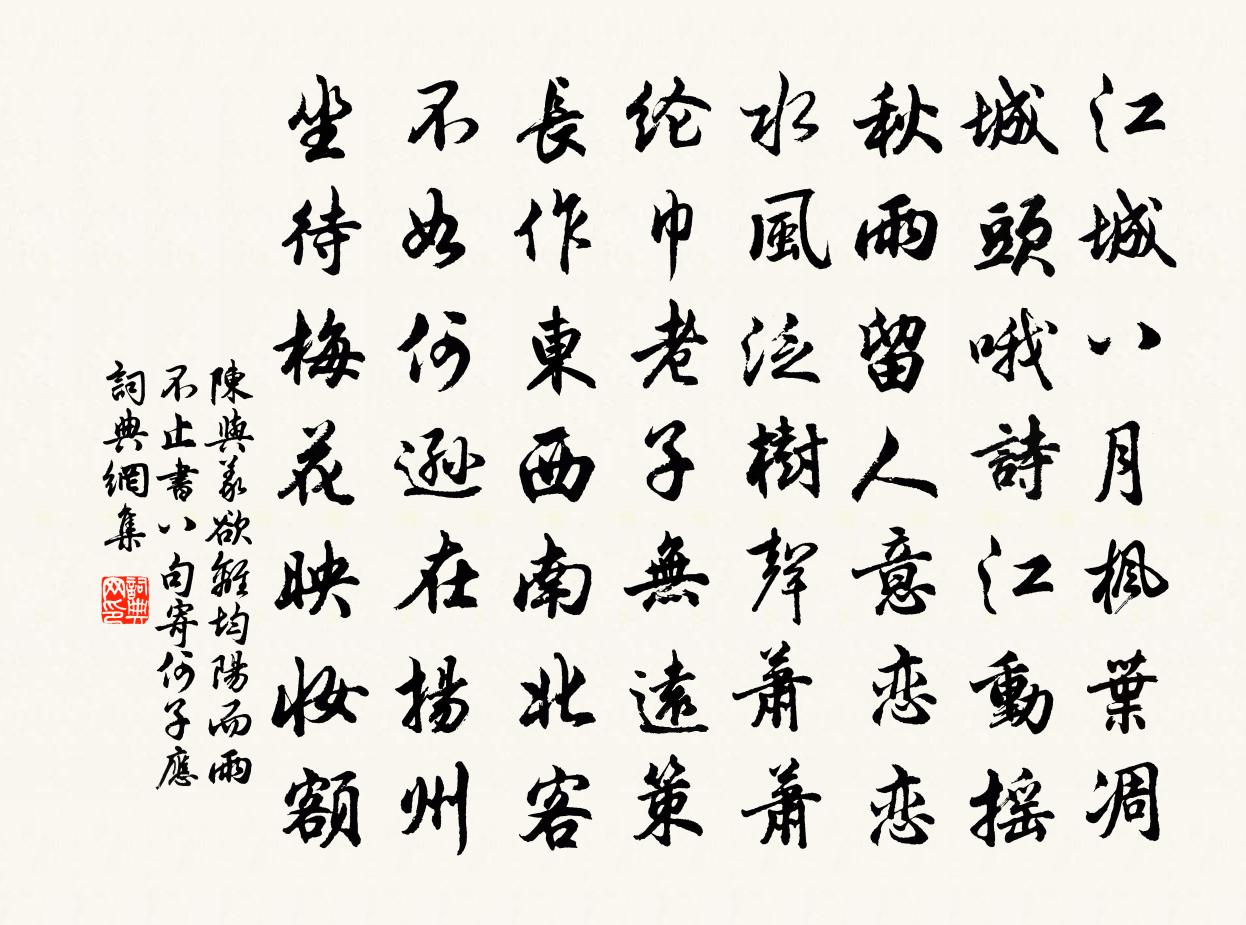 江城八月楓葉凋
城頭哦詩江動搖
秋雨留人意恋恋
水風泛樹聲蕭蕭
纶巾老子無遠策
長作東西南北客
不如何遜在揚州
坐待梅花映妝額
陳與義欲離均陽而雨
不止書八句寄何子應
詞典網集
詞典網印